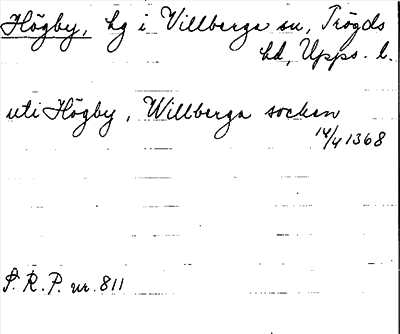 Högby, hg i Villberga sn, Trögds
hd, Upps. l.
uti Högby, Willberga socken
14/4 1368
S.R.P. nr. 811